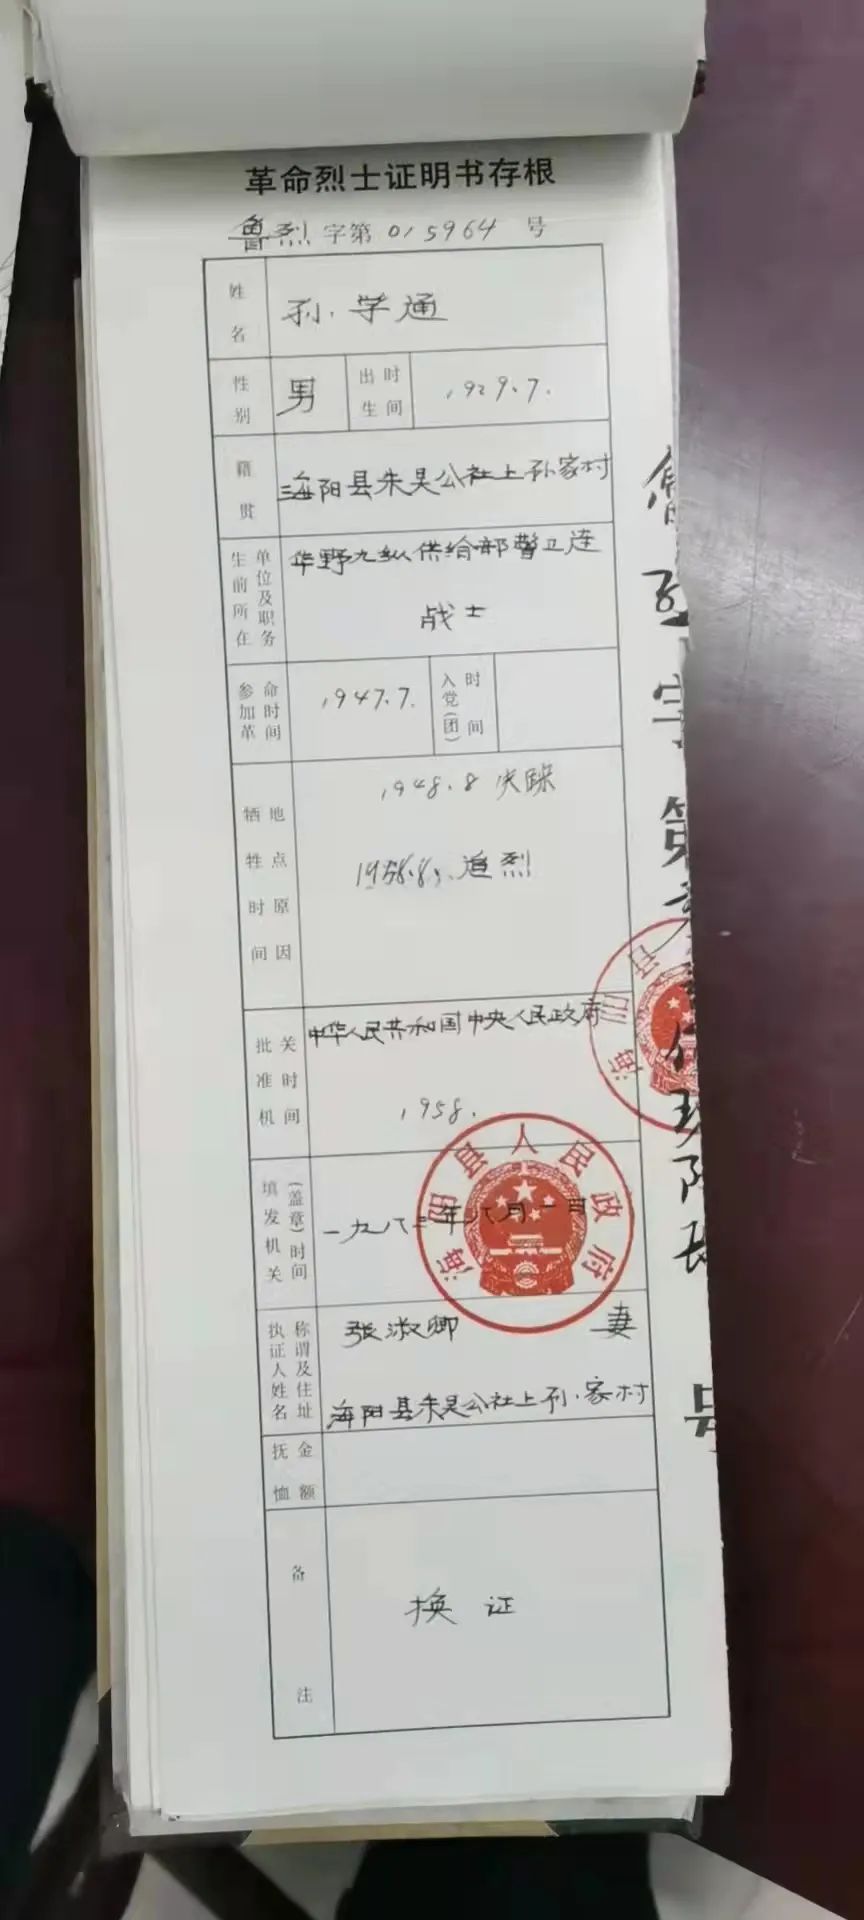 革命烈士证明书存根
鲁烈字第015964号
姓名 孙学通
性别 男 出生时间 1929.7.
籍贯 海阳县朱吴公社上孙家村
生前所在单位及职务 华野九纵供给部警卫连
战士
参加革命时间 1947.7. 入党(团)时间
牺牲时间地点原因 1948.8失踪
1958.8.追烈
批准机关时间 中华人民共和国中央人民政府
1958.
填发机关(盖章)时间 一九八三年八月一日
海阳县人民政府
执证人姓名称谓及住址 张淑卿 妻
海阳县朱吴公社上孙家村
抚恤金额
备注 换证
鲁烈字第
号
海阳县